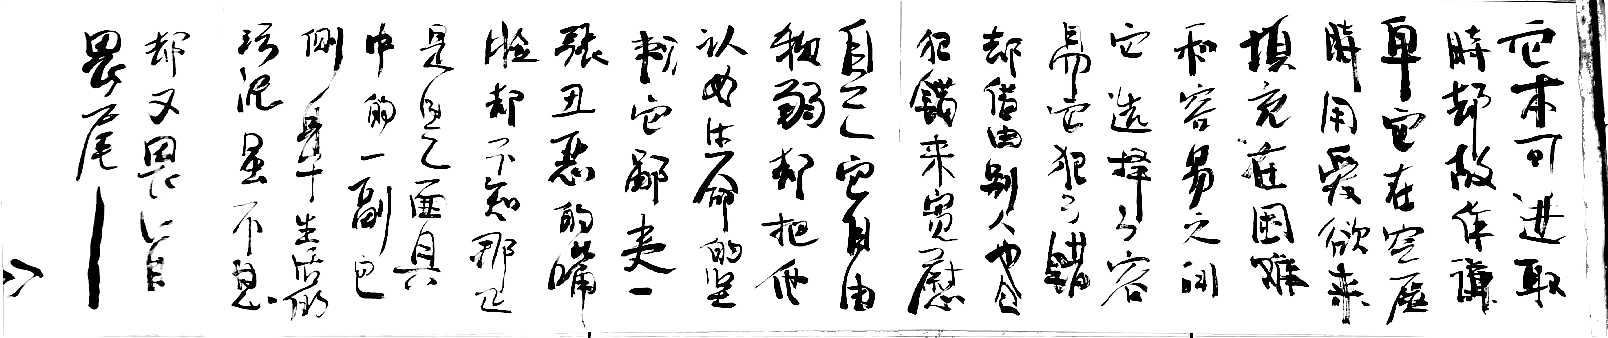 它本可进取
时却故作谦
卑它在空虚
时用爱欲来
填充在困难
和容易之间
它选择了容
易它犯了错
却借由别人也会
犯错来宽慰
自己它自由
软弱却把他
认为生命的坚
韧它鄙夷一
张丑恶的嘴
脸却不知那正
是自己面具
中的一副它
侧身于生活的
污泥虽不甘
却又畏首
畏尾